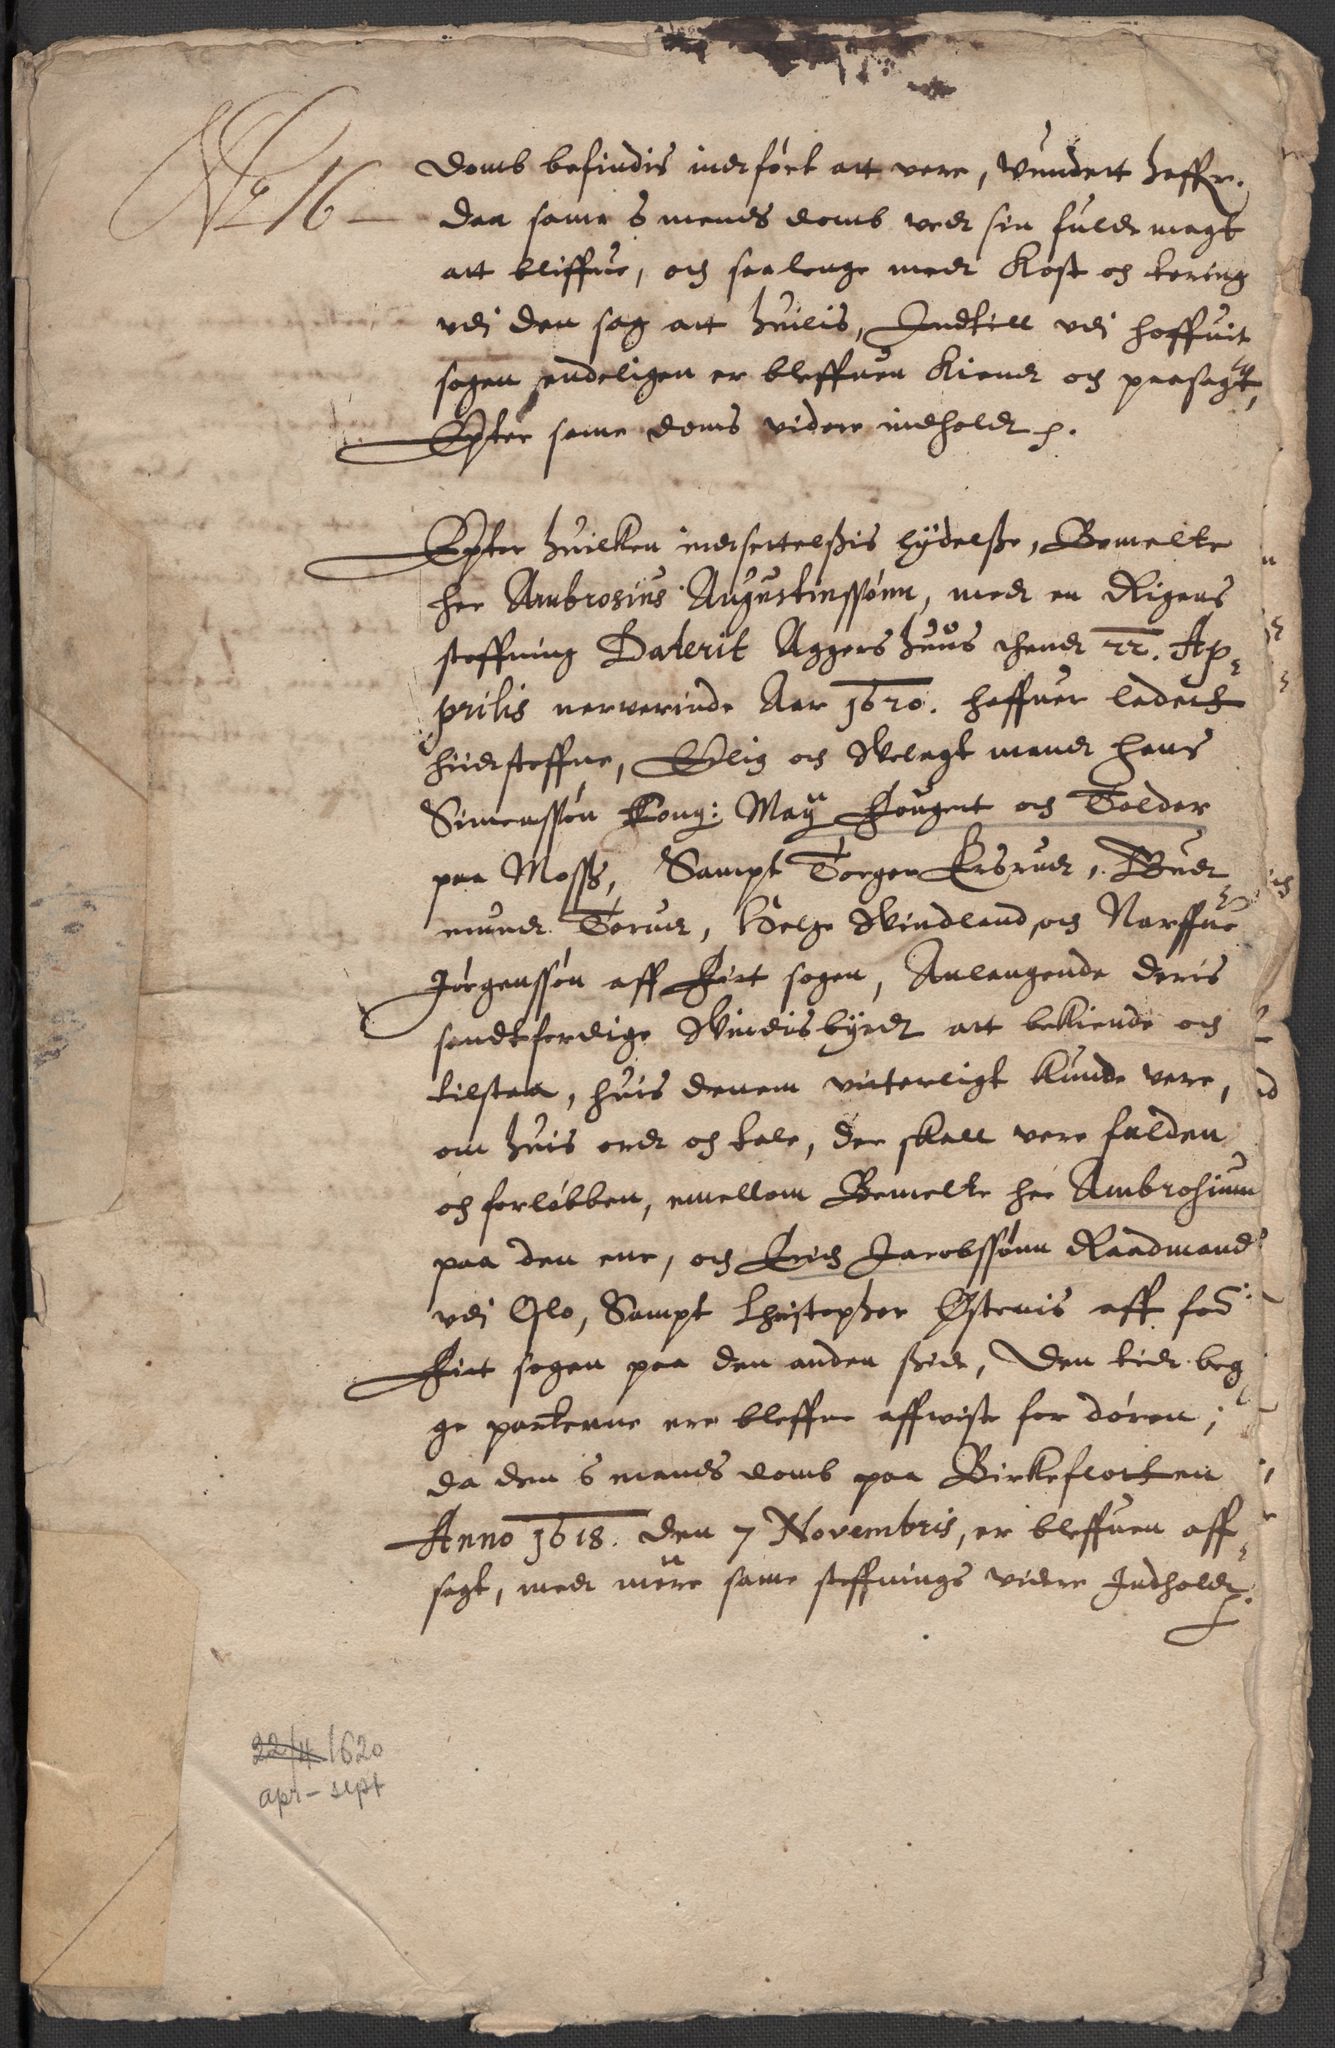 No 16
domb befindis indført att vere, Vundertt haffr.
daa same 6 mends domb ved sin fulde magt
att bliffue, och saalenge medt Kost och tering
vdj den sag att huilis, Indtill vdj hoffuit
sagen endeligen er bleffuen Kiendt och paasagt,
Effter same doms videre indholdt p.
Effter huilken indsettelssis lydelsse, Bemelte
her Ambrosius Augustinssønn, medt en Rigens
steffning Daterit Aggershuus thend 22. Ap-
prilis nerverinde Aar 1620. haffuer ladett
hiidsteffne, Erlig och Welagt mand Hans
Simenssøn Kong: May Fougett och Tolder
paa Moss, Sampt Torger Ersrud, Gud-
mund Torud, Helge Windland, och Narffue
Jørgenssøn aff sogen, Anlangende deris
sandtferdige Windisbyrdt att bekiende och
tilstaa, huis dennem vitterligt kunde vere,
om huis ord och tale, der skall vere falden
och forløbben, emellom Bemelte her Ambrosium
paa den ene, och Erich Jacobssønn Raadmand
vdj Oslo, Sampt Christopher Østenis aff for:
sogen paa den anden side, Den tid beg-
ge parterne ere bleffne affwiste for døren,
da den 6 mands domb paa Birkeflotten
Anno 1618. den 7 Novembris, er bleffuen aff-
sagt, medt mere same steffnings videre Indholdt p.
22/4 1620
apr - sept